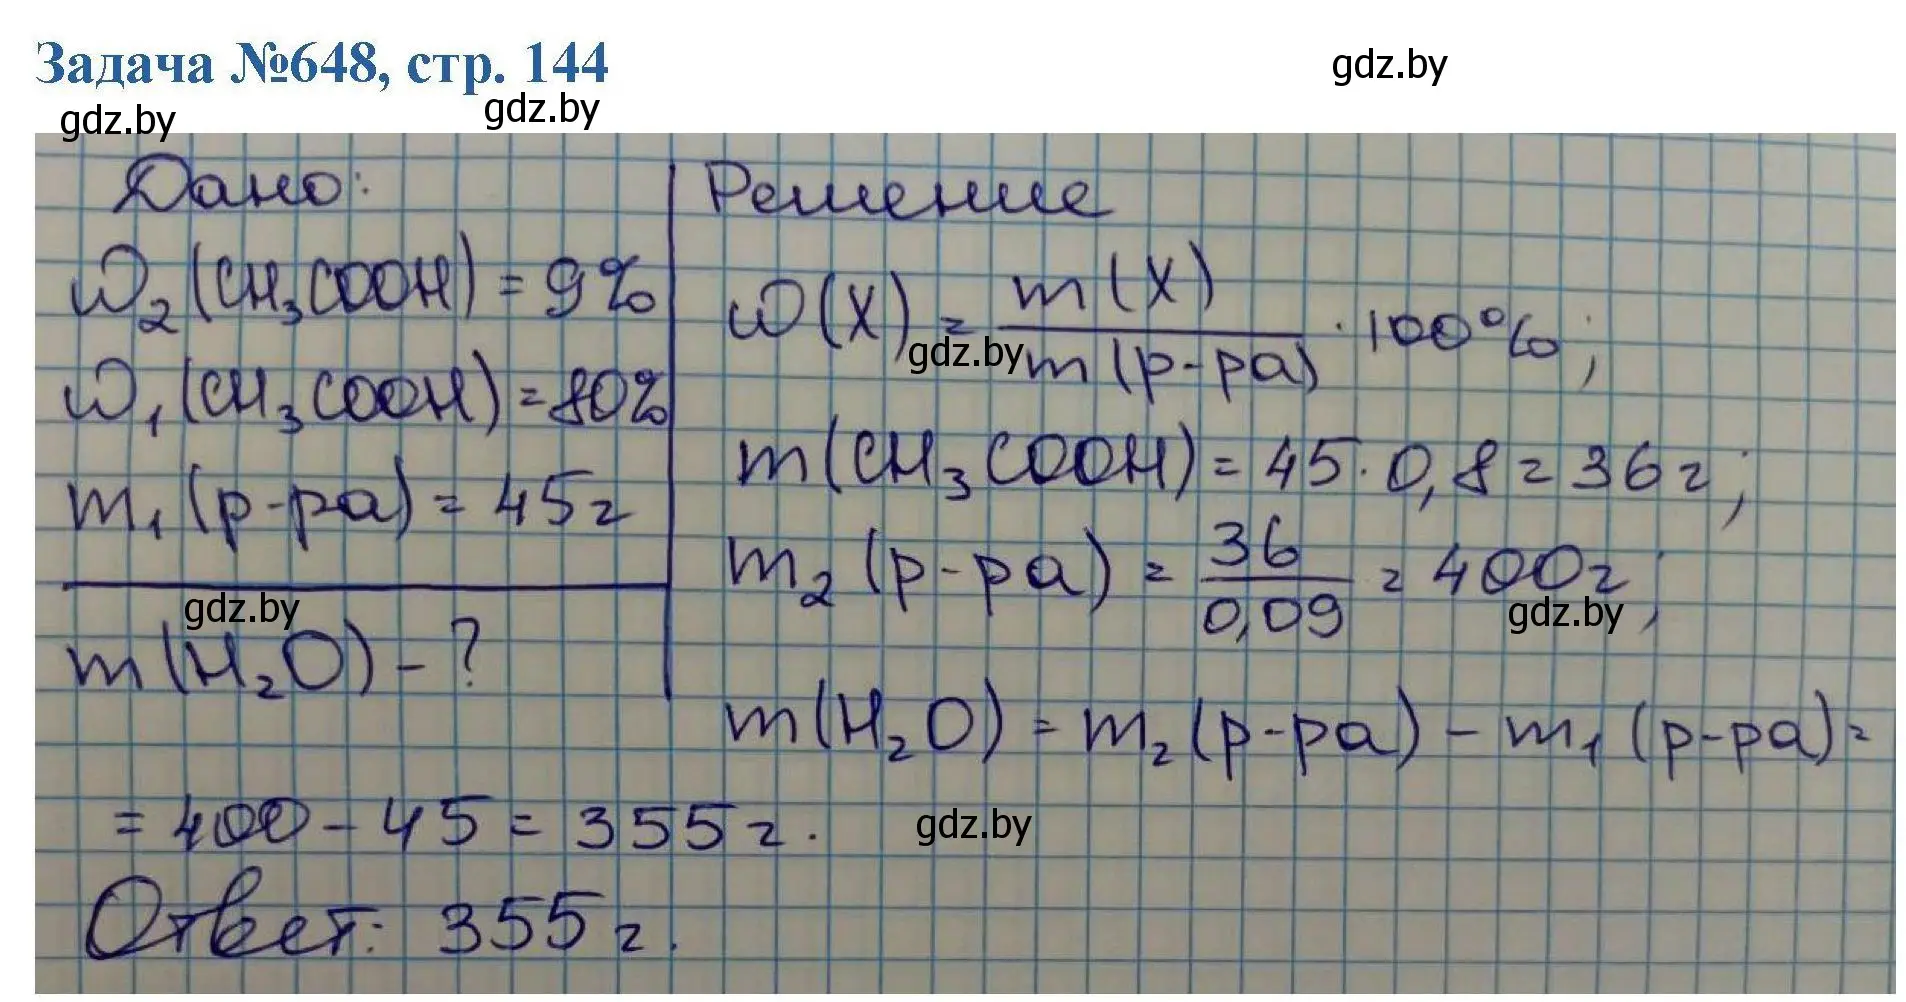 Задача №648, стр. 144
gdz.by
gdz.by
gdz.by
Дано:
ω₂(CH₃COOH) = 9%
ω₁(CH₃COOH) = 80%
m₁(р-ра) = 45г
gdz.by
m(H₂O) - ?
Решение
ω(X) = m(X) / m(р-ра) · 100%;
gdz.by
m(CH₃COOH) = 45 · 0,8 = 36г;
m₂(р-ра) = 36 / 0,09 = 400г;
gdz.by
m(H₂O) = m₂(р-ра) - m₁(р-ра) =
= 400 - 45 = 355г.
gdz.by
Ответ: 355г.